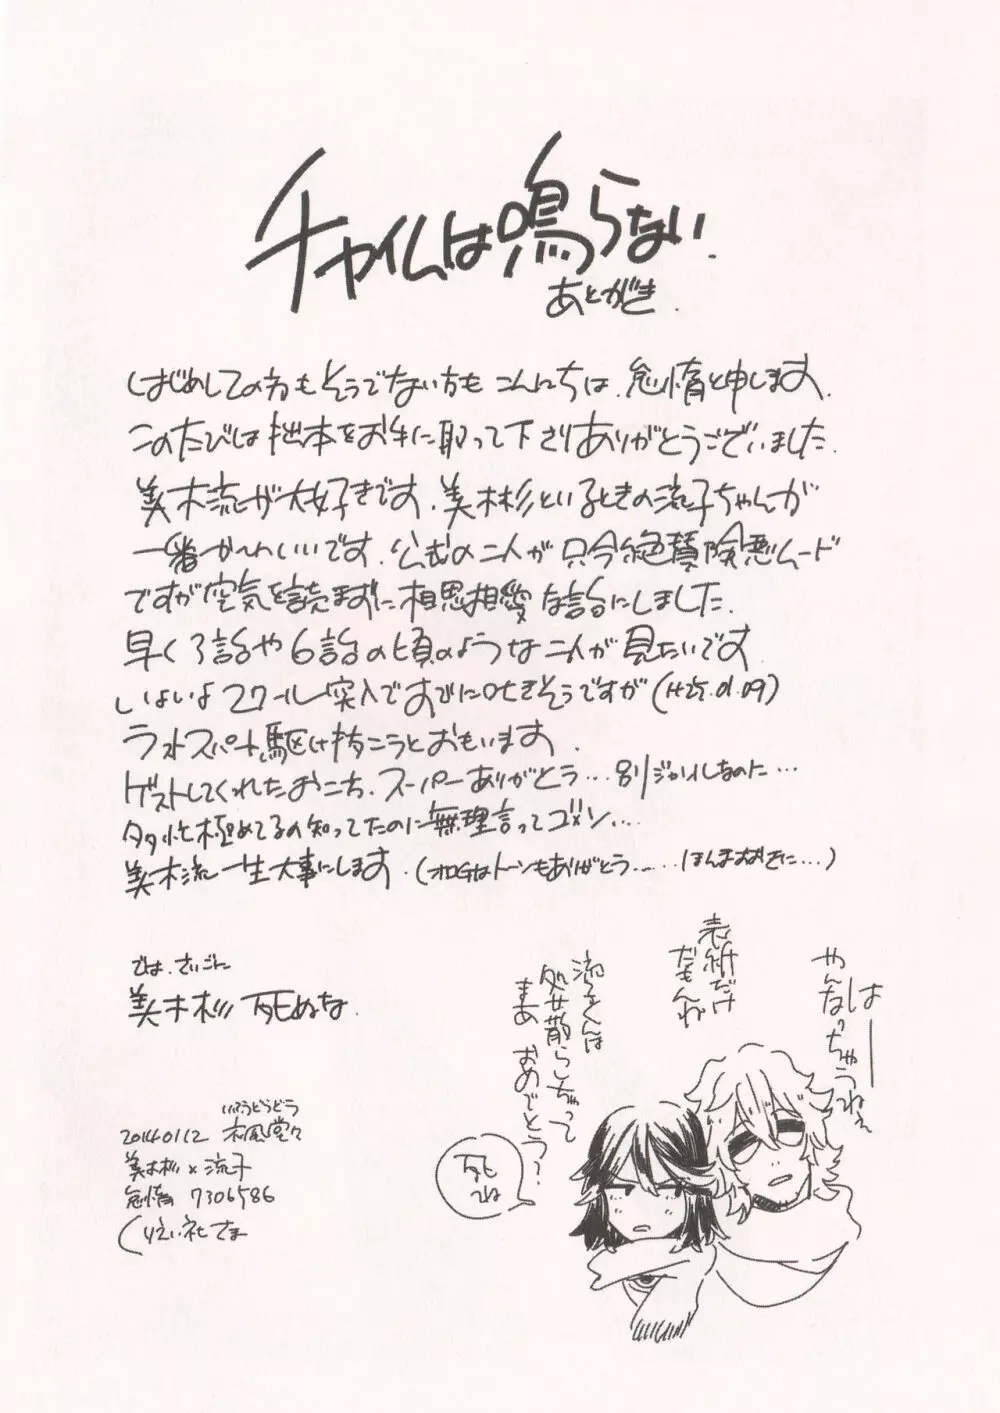 チャイムは鳴らない.
あとがき.
はじめしての方もそうでない方もこんにちは.怠惰と申します.
このたびは拙本をお手に取って下さりありがとうございました.
美木流が大好きです.美木杉といるときの流子ちゃんが
一番かわいいです.公式の二人が只今絶賛険悪ムード
ですが空気を読まずに相思相愛な話にしました.
早く3話や6話の頃のような二人が見たいです
いよいよ2クール突入ですでに吐きそうですが
ラストスパート駆け抜こうとおもいます.
ゲストしてくれたおこち.スーパーありがとう…別ジャンルなのに…
多忙極めてるの知ってたのに無理言ってゴメン…
美木流一生大事にします.
では.さいごに
美木杉死ぬな.
20140112
美木杉×流子
怠惰 7306586
くりえい社さま
はー
やんなっちゃうねえ
表紙だけ
だもんね
処女散らしちゃって
まあ おめでとう?
死ね